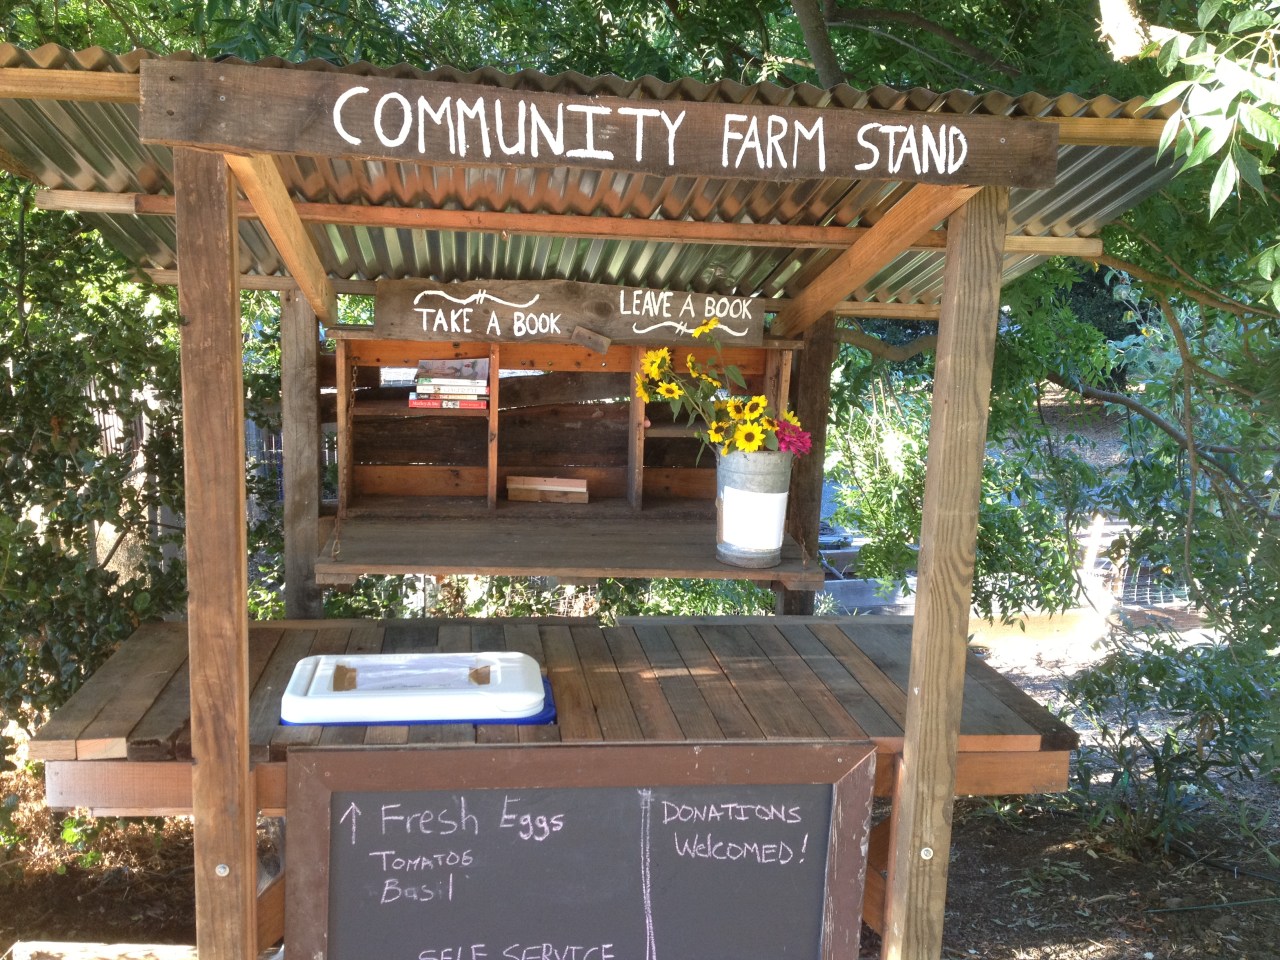 COMMUNITY FARM STAND
TAKE A BOOK
LEAVE A BOOK
↑ Fresh Eggs
TOMATOS
Basil
SELF SERVICE
DONATIONS
WELCOMED!